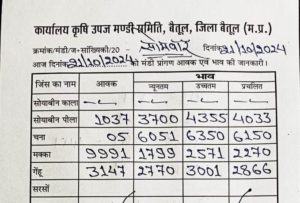 कार्यालय कृषि उपज मण्डी समिति, बैतूल, जिला बैतूल (म.प्र.)
क्रमांक/मंडी/ज/सांख्यिकी/20 - सोमवार दिनांक 21/10/2024
आज दिनांक 21/10/2024 को मंडी प्रांगण आवक एवं भाव की जानकारी।
जिंस का नाम आवक भाव
न्यूनतम उच्चतम प्रचलित
सोयाबीन काला - - - -
सोयाबीन पीला 1037 3700 4355 4033
चना 05 6051 6350 6150
मक्का 9991 1799 2571 2270
गेंहू 3147 2770 3001 2866
सरसों